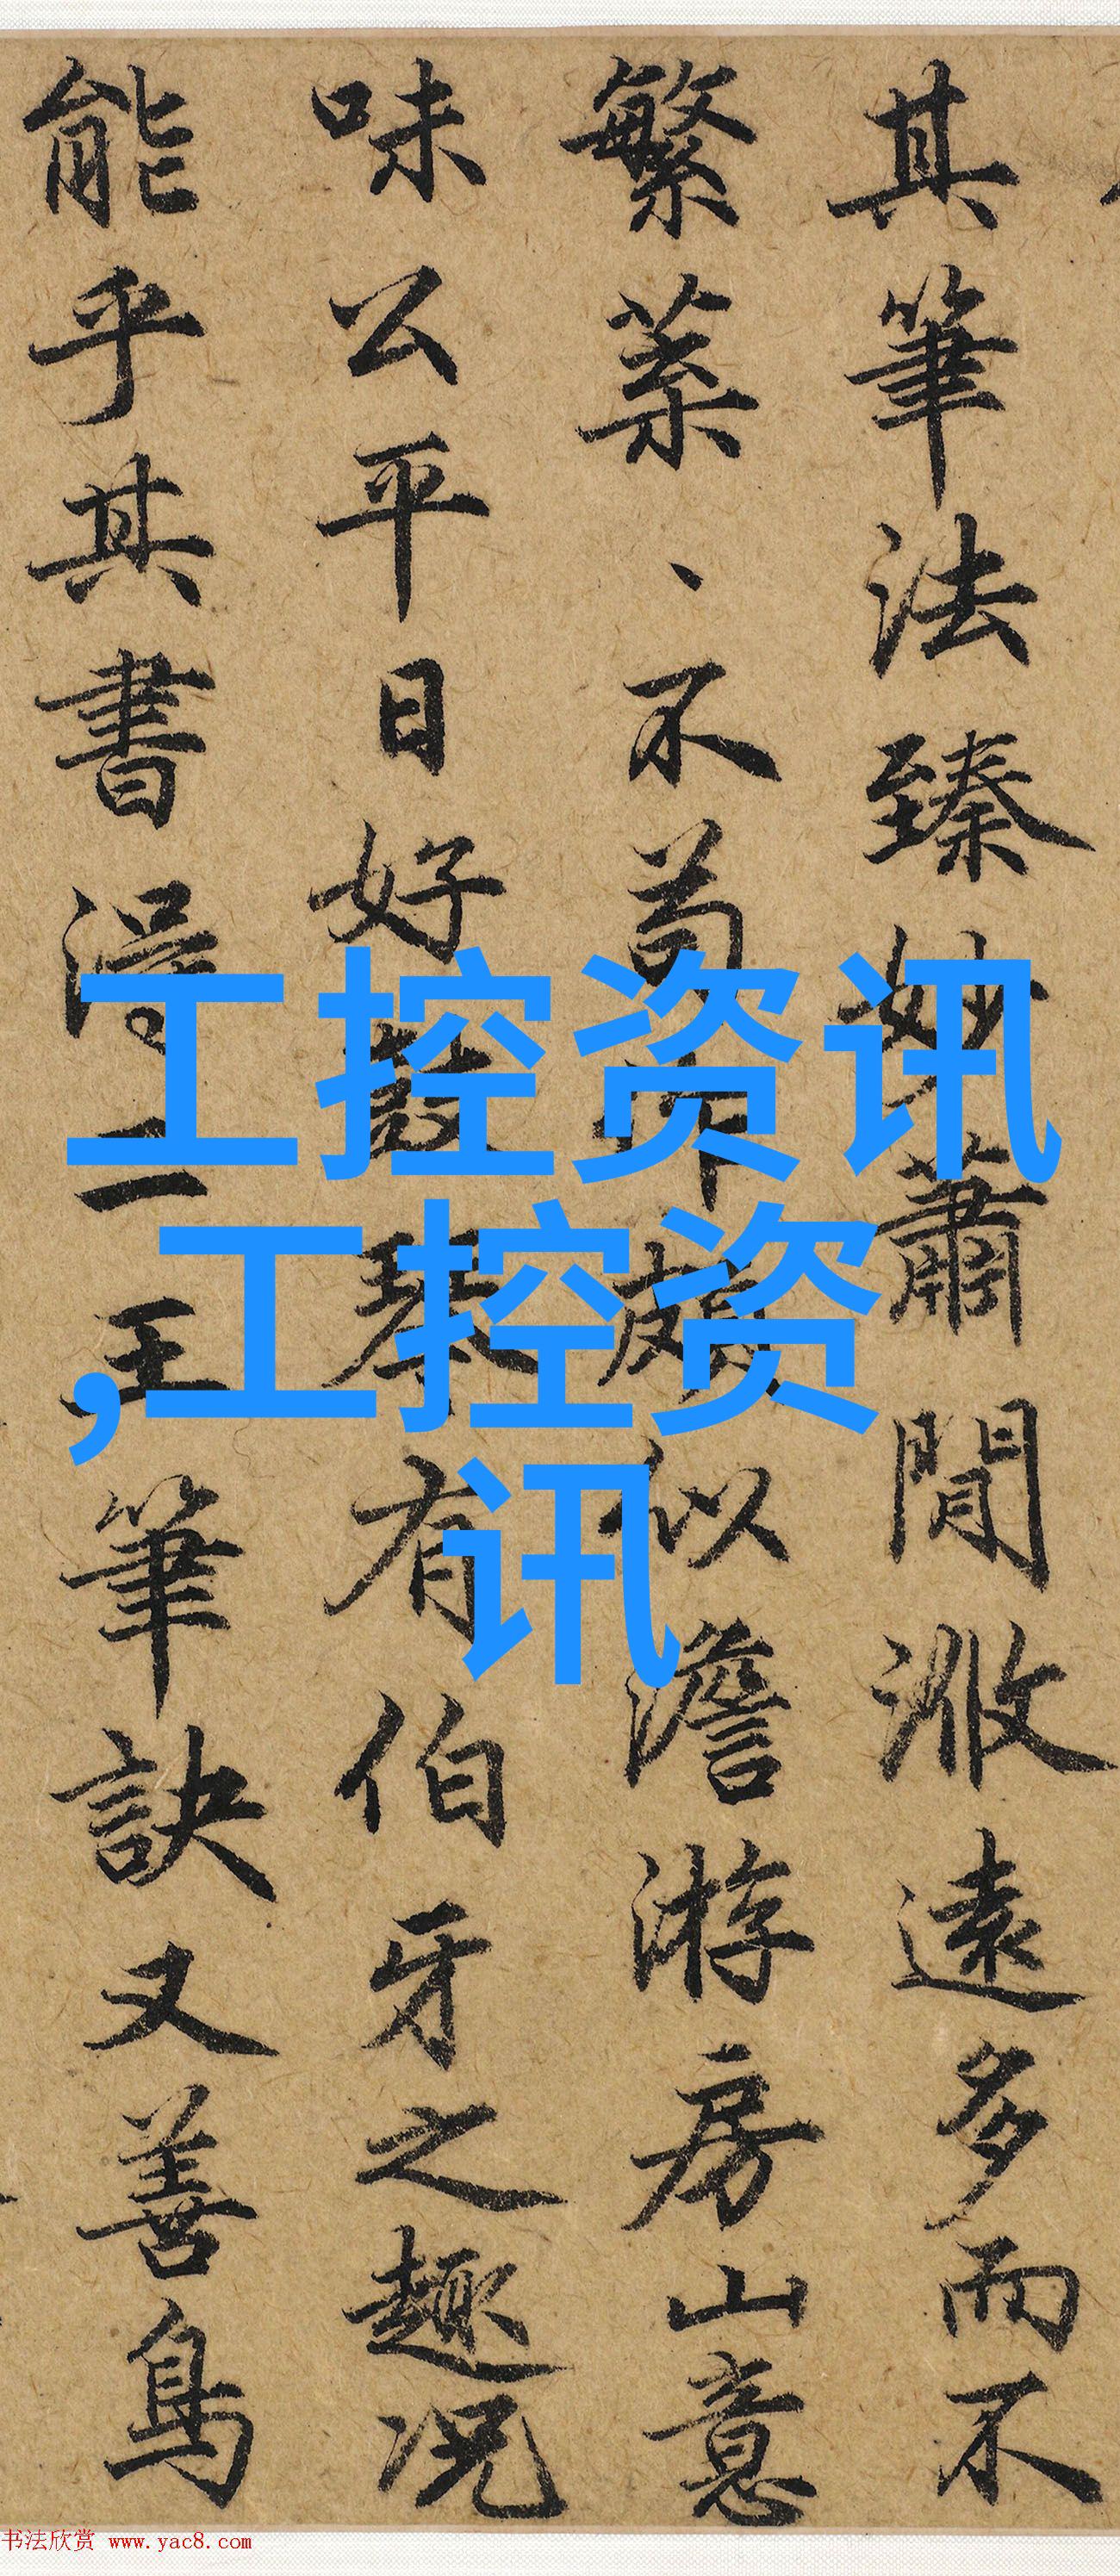 其筆法臻妙蕭閒淡遠多而不
繁菜、不苟作頗似澹游房山意
味公平日好鼓琴有伯牙之趣況
能乎其書得二王筆訣又善鳥
工控资讯
,工控资
讯
书法欣赏 www.yac8.com